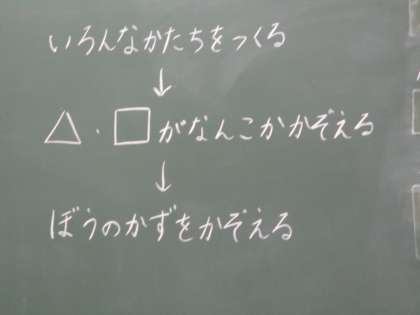 いろんなかたちをつくる
↓
△・□がなんこかかぞえる
↓
ぼうのかずをかぞえる